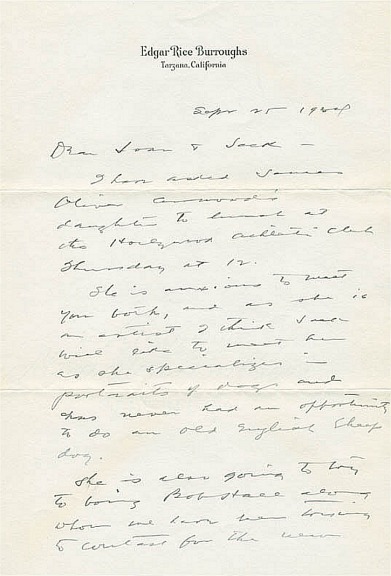 Edgar Rice Burroughs
Tarzana, California
Sept 25 1928
Dear Joan & Jack —
I have asked James
Oliver Curwood's
daughter to lunch at
the Hollywood Athletic Club
Thursday at 12.
She is anxious to meet
you both, and as she is
an artist I think Jack
will like to meet her
as she specializes in
portraits of dogs and
has never had an opportunity
to do an old English Sheep
dog.
She is also going to try
to bring Bob Stall along
whom we have been trying
to contact for the new